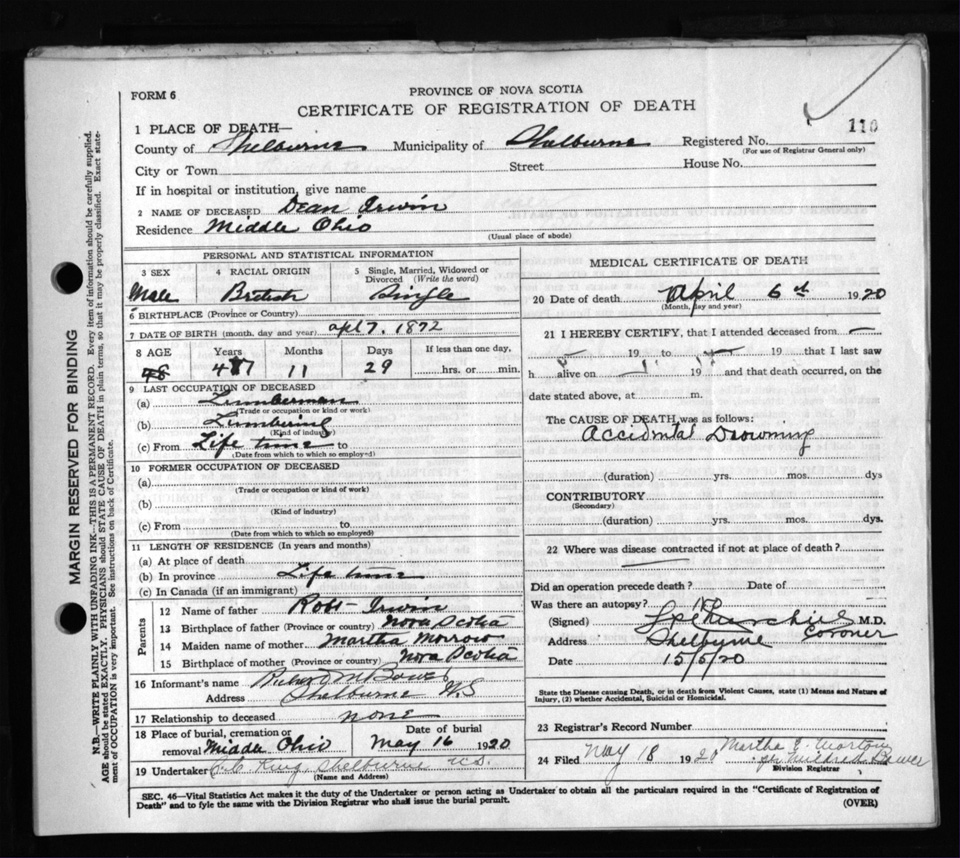 FORM 6
PROVINCE OF NOVA SCOTIA
CERTIFICATE OF REGISTRATION OF DEATH
110
1 PLACE OF DEATH—
County of Shelburne Municipality of Shelburne Registered No.
(For use of Registrar General only)
City or Town Street House No.
If in hospital or institution, give name
2 NAME OF DECEASED Dean Irwin
Residence Middle Ohio
(Usual place of abode)
PERSONAL AND STATISTICAL INFORMATION
3 SEX 4 RACIAL ORIGIN 5 Single, Married, Widowed or Divorced (Write the word)
Male British Single
6 BIRTHPLACE (Province or Country)
7 DATE OF BIRTH (month, day and year) Apl 7, 1872
8 AGE Years Months Days If less than one day,
48 47 11 29 hrs. or min.
9 LAST OCCUPATION OF DECEASED
(a) Lumberman
(Trade or occupation or kind of work)
(b) Lumbering
(Kind of industry)
(c) From Life time to
(Date from which to which so employed)
10 FORMER OCCUPATION OF DECEASED
(a)
(Trade or occupation or kind of work)
(b)
(Kind of industry)
(c) From to
(Date from which to which so employed)
11 LENGTH OF RESIDENCE (In years and months)
(a) At place of death
(b) In province Life time
(c) In Canada (if an immigrant)
Parents
12 Name of father Robt Irwin
13 Birthplace of father (Province or country) Nova Scotia
14 Maiden name of mother Martha Morrow
15 Birthplace of mother (Province or country) Nova Scotia
16 Informant's name Richard M Bower
Address Shelburne N.S
17 Relationship to deceased none
18 Place of burial, cremation or removal Middle Ohio Date of burial May 16 1920
19 Undertaker King, Shelburne N.S.
(Name and Address)
MEDICAL CERTIFICATE OF DEATH
20 Date of death April 6th 1920
(Month, day and year)
21 I HEREBY CERTIFY, that I attended deceased from
19 to 19 that I last saw
h alive on 19 and that death occurred, on the
date stated above, at m.
The CAUSE OF DEATH was as follows:
Accidental Drowning
(duration) yrs. mos. dys
CONTRIBUTORY
(Secondary)
(duration) yrs. mos. dys.
22 Where was disease contracted if not at place of death?
Did an operation precede death? Date of
Was there an autopsy? no
(Signed) M.D.
Coroner
Address Shelburne
Date 15/5/20
State the Disease causing Death, or in death from Violent Causes, state (1) Means and Nature of Injury, (2) whether Accidental, Suicidal or Homicidal.
23 Registrar's Record Number
24 Filed May 18 1920 Martha E. Morton
Mildred Bower
Division Registrar
SEC. 46—Vital Statistics Act makes it the duty of the Undertaker or person acting as Undertaker to obtain all the particulars required in the "Certificate of Registration of
Death" and to fyle the same with the Division Registrar who shall issue the burial permit.
(OVER)
MARGIN RESERVED FOR BINDING
N.B.—WRITE PLAINLY WITH UNFADING INK—THIS IS A PERMANENT RECORD. Every item of information should be carefully supplied.
AGE should be stated EXACTLY. PHYSICIANS should STATE CAUSE OF DEATH in plain terms, so that it may be properly classified. Exact state-
ment of OCCUPATION is very important. See instructions on back of Certificate.